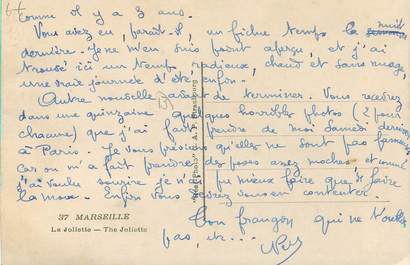 comme il y a 3 ans.
Vous avez eu, paraît-il, un fichu temps la nuit
dernière. Je ne m'en suis point aperçu, et j'ai
trouvé ici un temps radieux, chaud et sans nuage,
une vraie journée d'été enfin.
Autre nouvelle avant de terminer. Vous recevrez
dans une quinzaine quelques horribles photos (2 pour
chacune) que j'ai fait prendre de moi samedi dernier
à Paris. Je vous préviens qu'elles ne sont pas fameuses
car on m'a fait prendre des poses assez moches et comme
j'ai voulu sourire je n'ai pu mieux faire que de faire
la moue. Enfin vous devrez vous en contenter.
Ton frangin qui ne t'oublie
pas, etc...
37 MARSEILLE
La Joliette — The Joliette